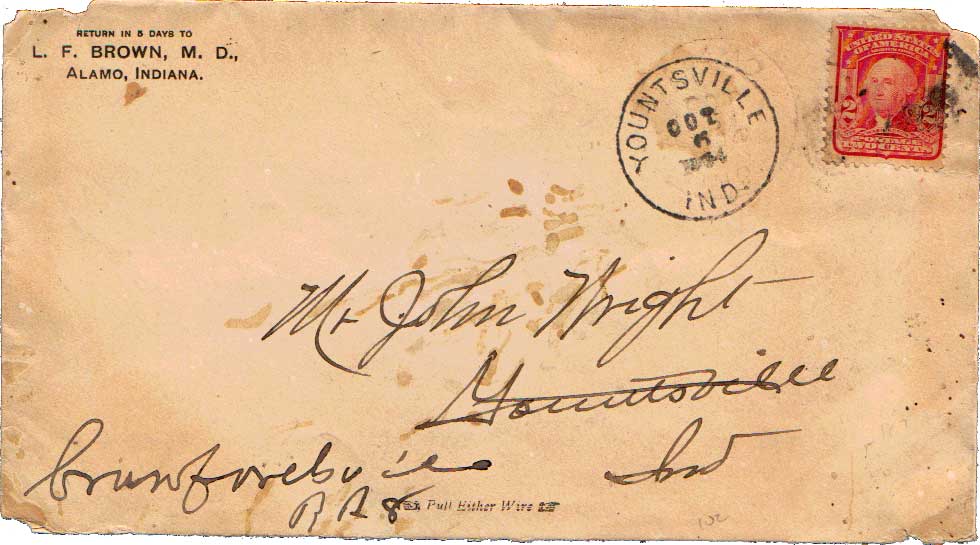 RETURN IN 5 DAYS TO
L. F. BROWN, M. D.,
ALAMO, INDIANA.
YOUNTSVILLE
OCT
1904
IND.
UNITED STATES
OF AMERICA
2 2
POSTAGE
TWO CENTS
Mr John Wright
Yountsville
Ind
Crawfordsville
R R 8
Pull Either Wire
102